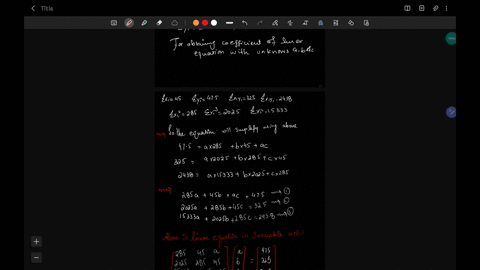 Title
For obtaining coefficient of linear
equation with unknowns a.b.&c
Σxi=45 Σyi=47.5 Σxiyi=325 Σxi²yi=2438
Σxi²=285 Σxi³=2025 Σxi⁴=15333
So the equation will simplify using above
47.5 = a×285 + b×45 + ac
325 = a×2025 + b×285 + c×45
2438 = a×15333 + b×2025 + c×285
285a + 45b + ac = 47.5 → ①
2025a + 285b + 45c = 325 → ②
15333a + 2025b + 285c = 2438 → ③
linear equation in 3 variable
285 45 a a 475
2025 285 45 b = 325